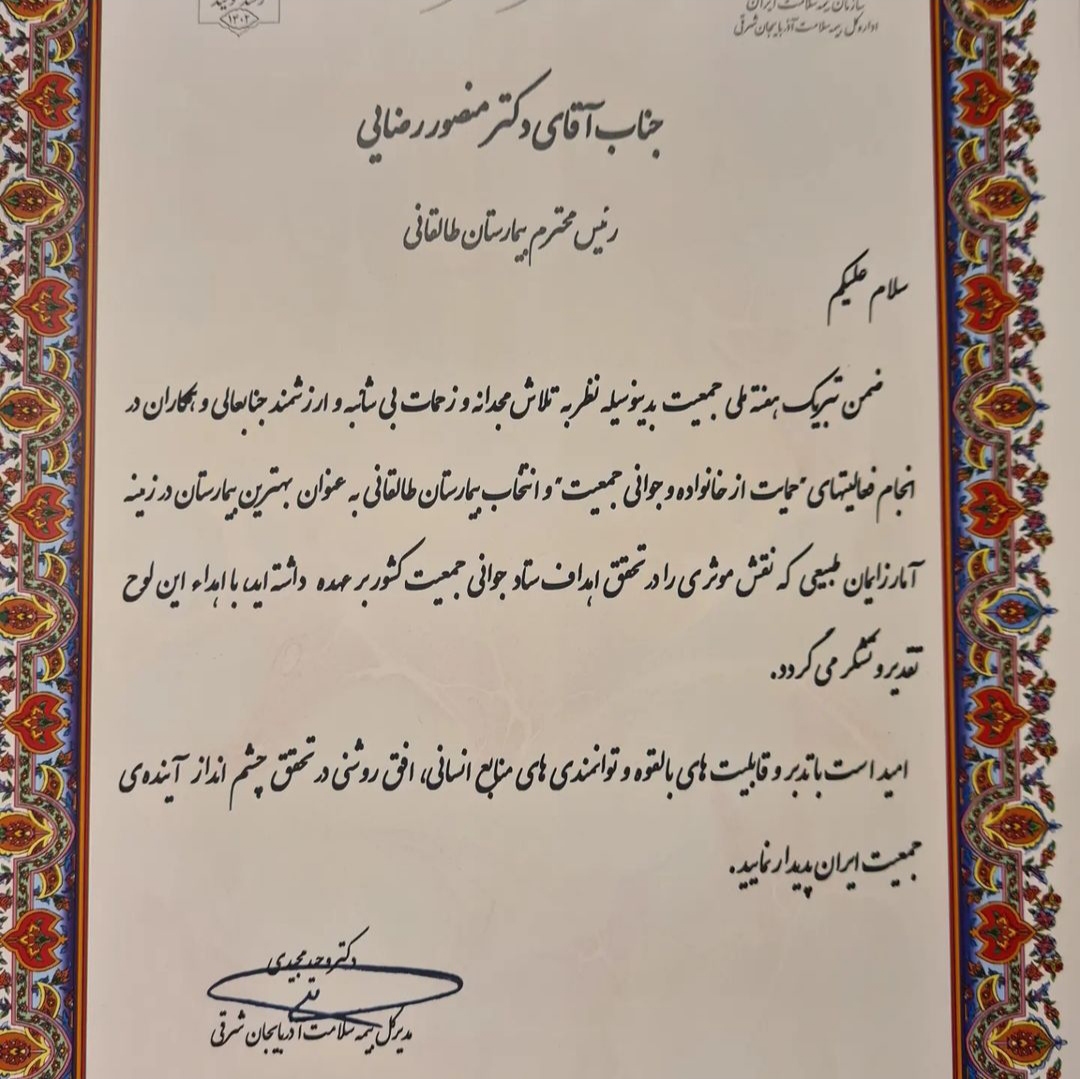 سازمان بیمه سلامت ایران
اداره کل بیمه سلامت آذربایجان شرقی
۱۴۰۲
جناب آقای دکتر منصور رضایی
رئیس محترم بیمارستان طالقانی
سلام علیکم
ضمن تبریک هفته ملی جمعیت بدینوسیله نظر به تلاش مجدانه و زحمات بی شائبه و ارزشمند جنابعالی و همکاران در
انجام فعالیتهای "حمایت از خانواده و جوانی جمعیت" و انتخاب بیمارستان طالقانی به عنوان بهترین بیمارستان در زمینه
آمار زایمان طبیعی که نقش موثری را در تحقق اهداف ستاد جوانی جمعیت کشور بر عهده داشته اید، با اهداء این لوح
تقدیر و تشکر می گردد.
امید است با تدبر و قابلیت های بالقوه و توانمندی های منابع انسانی، افق روشنی در تحقق چشم انداز آینده‌ی
جمعیت ایران پدیدار نمایید.
دکتر وحید مجیدی
مدیر کل بیمه سلامت آذربایجان شرقی